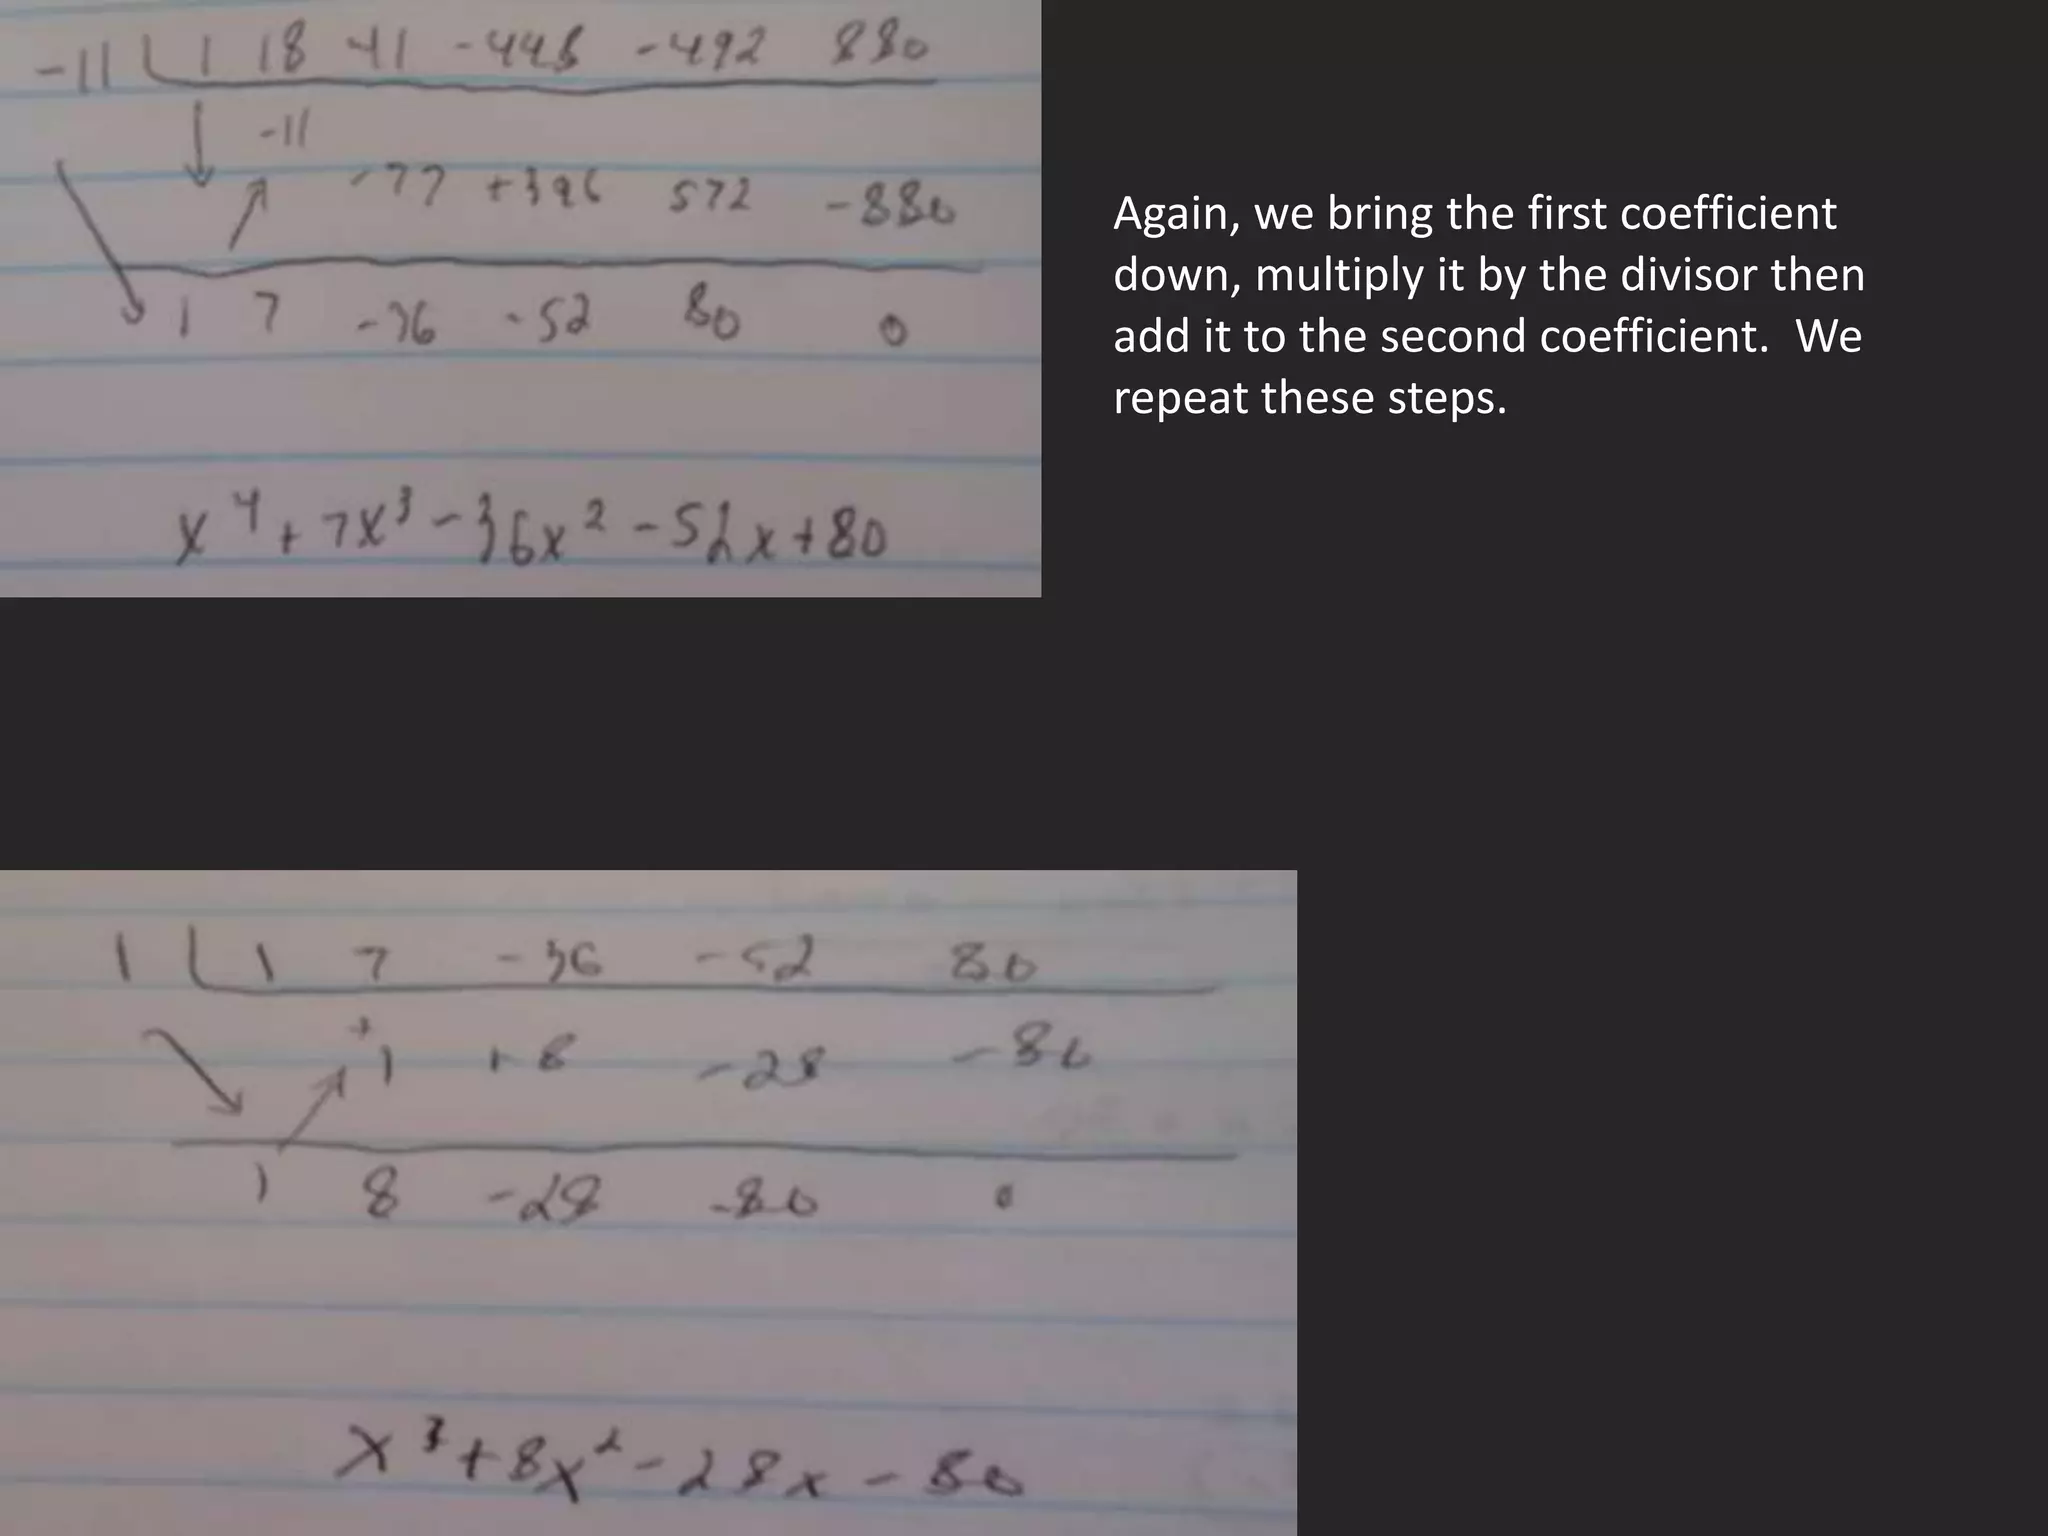 -11 1 18 41 -448 -492 880
-11
-77 +396 572 -880
1 7 -36 -52 80 0
x⁴ + 7x³ - 36x² - 52x + 80
Again, we bring the first coefficient
down, multiply it by the divisor then
add it to the second coefficient. We
repeat these steps.
1 1 7 -36 -52 80
+1 +8 -28 -80
1 8 -28 -80 0
x³ + 8x² - 28x - 80